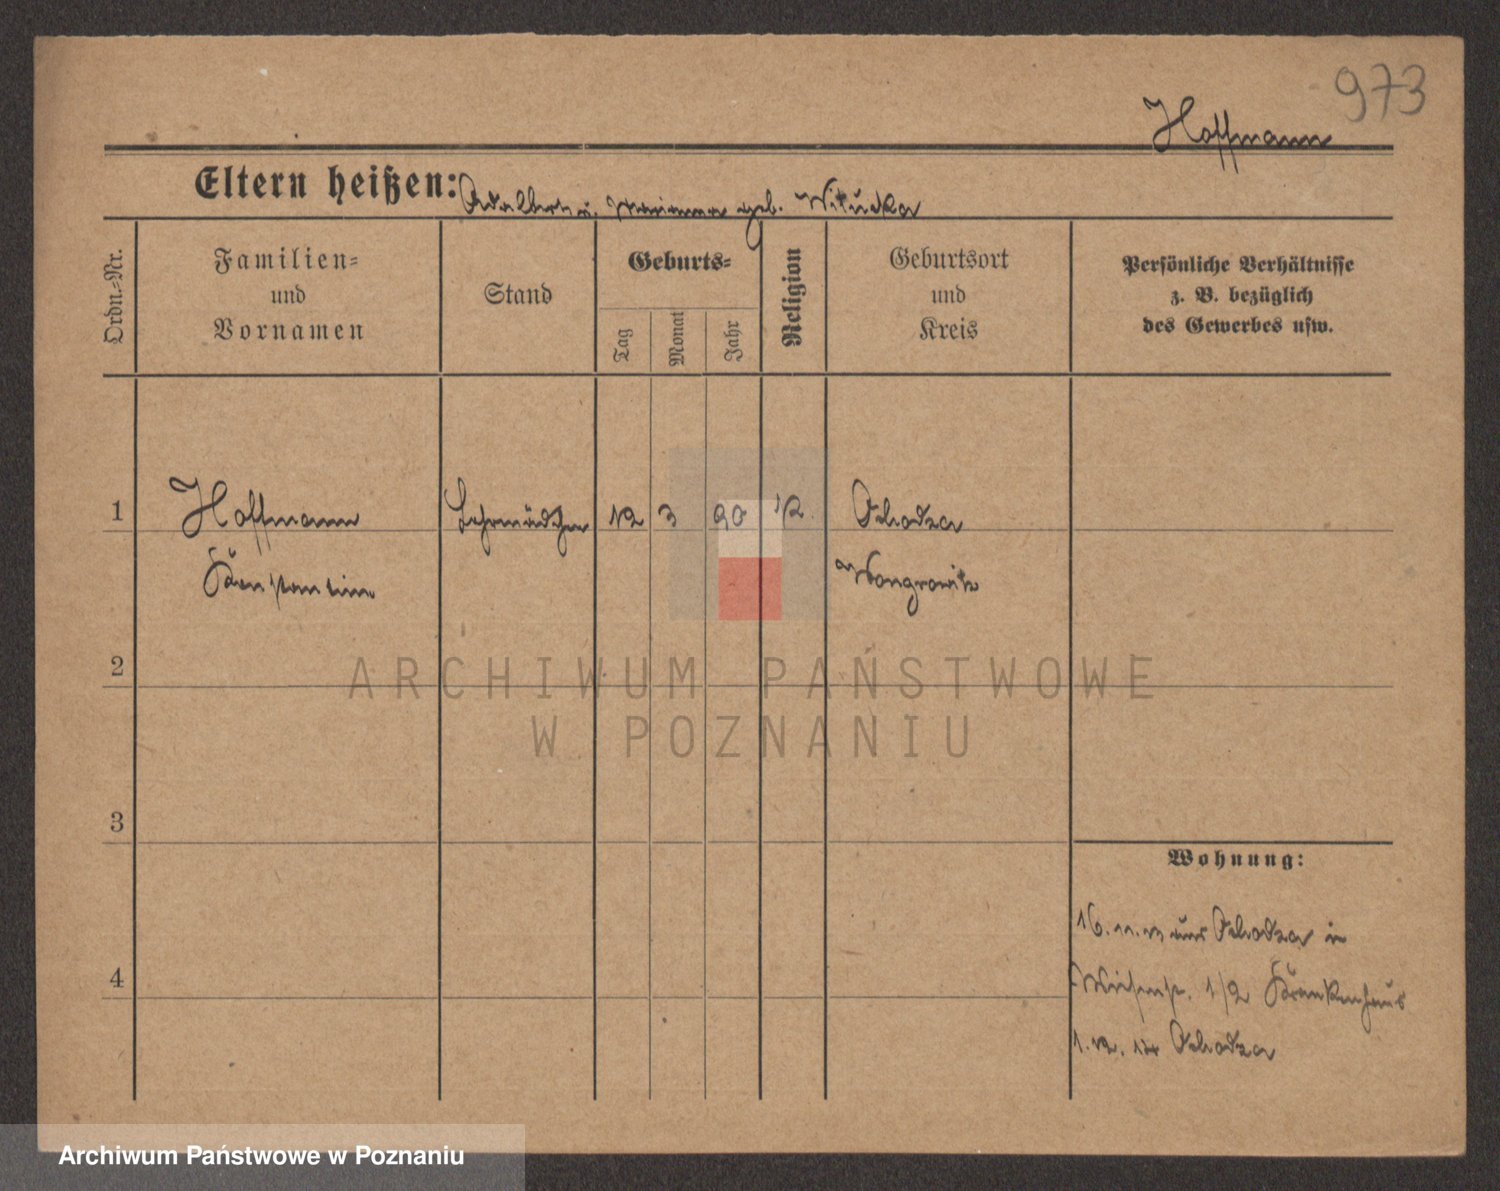 973
Hoffmann
Eltern heißen: Adalbert u. Marianna geb. Witucka
Ordn.-Nr.
Familien-
und
Vornamen
Stand
Geburts-
Tag
Monat
Jahr
Religion
Geburtsort
und
Kreis
Persönliche Verhältnisse
z. B. bezüglich
des Gewerbes usw.
1
Hoffmann
Lehrmädchen
12
3
90
Ochodza
Wongrowitz
2
ARCHIWUM PAŃSTWOWE
W POZNANIU
3
Wohnung:
4
16. 11. 13 aus Ochodza in
1/2 Krankenhaus
Ochodza
Archiwum Państwowe w Poznaniu